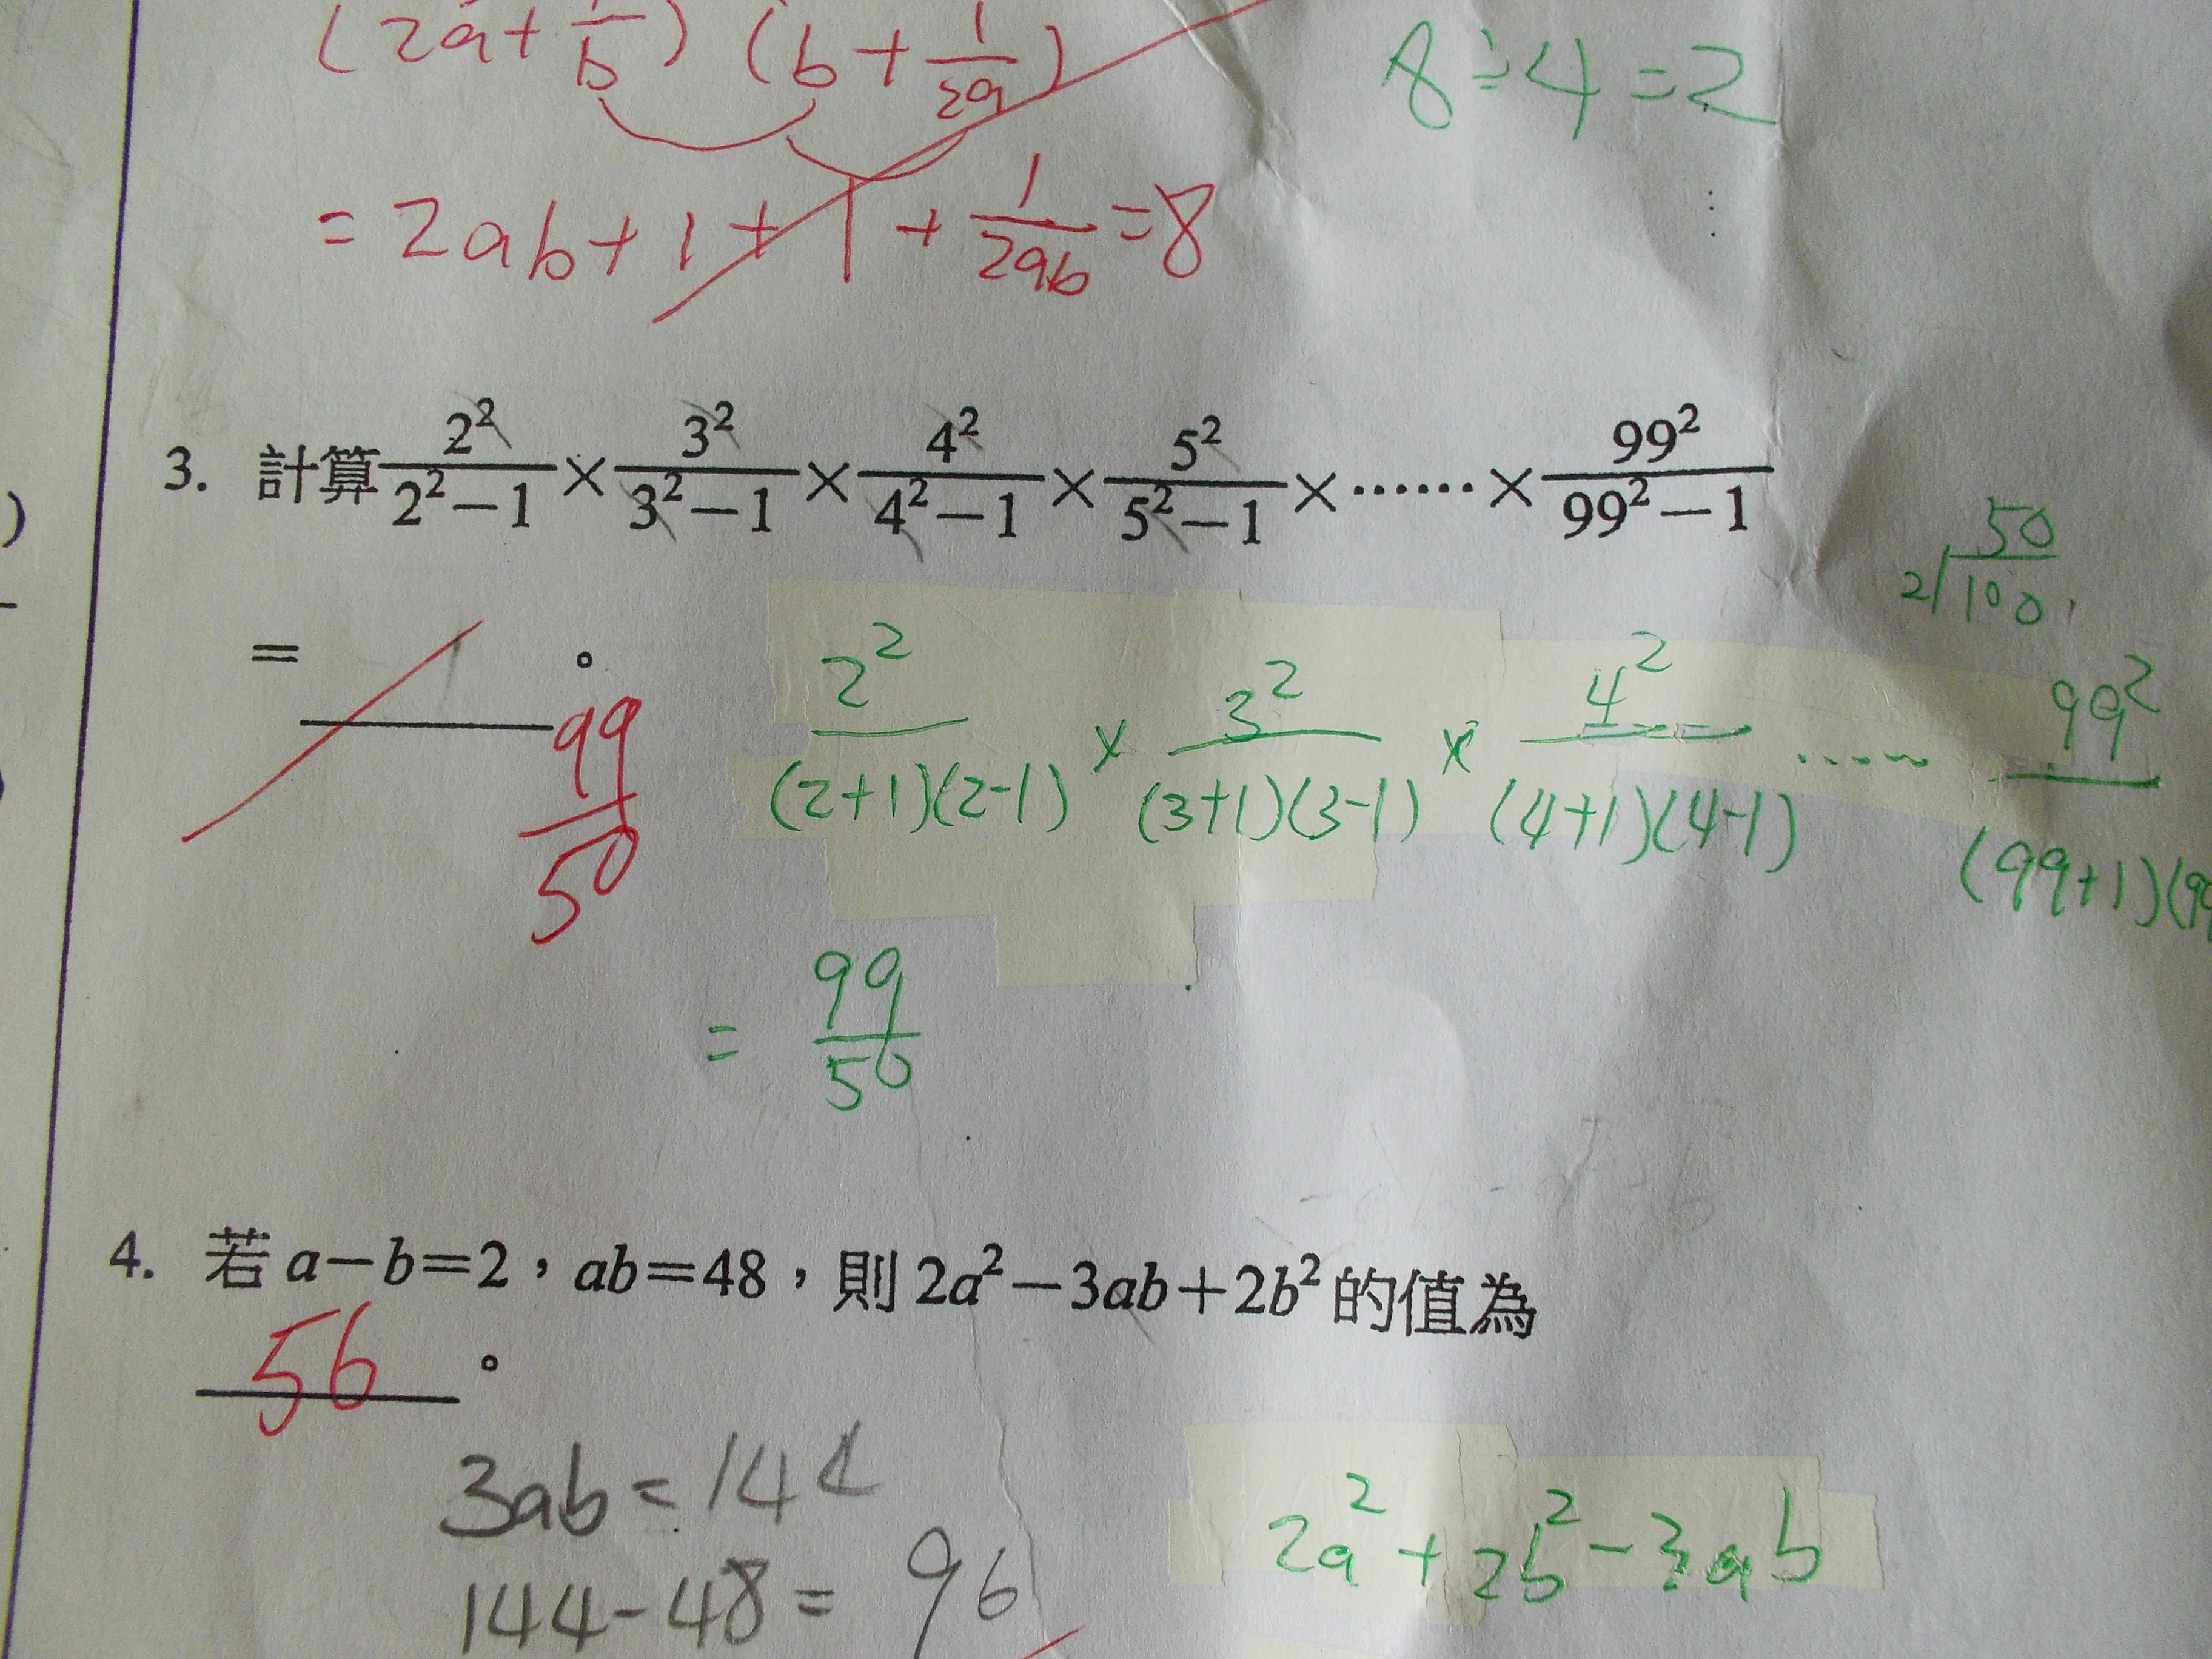 (2a+1/b) (b+1/2a)
8÷4=2
=2ab+1+1+1/2ab=8
3. 計算 2²/(2²−1) × 3²/(3²−1) × 4²/(4²−1) × 5²/(5²−1) × …… × 99²/(99²−1)
50
2√100
= ______。
99/50
2²/(2+1)(2-1) × 3²/(3+1)(3-1) × 4²/(4+1)(4-1) …… 99²/(99+1)(9
= 99/50
4. 若 a−b=2,ab=48,則 2a²−3ab+2b² 的值為
56 。
3ab=144
2a²+2b²-3ab
144-48= 96